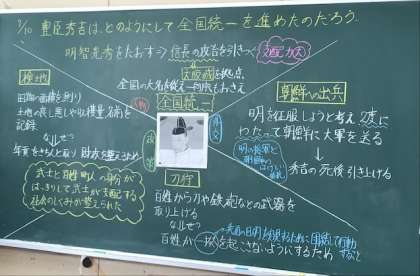 7/10 豊臣秀吉は、どのようにして全国統一を進めたのだろう。
明智光秀をたおす⇒信長の政治を引きつぐ 支配力大
大阪城を拠点
全国の大名を従え一向宗もおさえ
全国統一
検地
田畑の面積を測り
土地の良し悪しや収穫量、名前を
記録。
なぜ?
年貢をきちんと取り 財政を整えるため
武士と百姓町人の身分が
はっきりして武士が支配する
社会のしくみが整えられた
政策
外交
朝鮮への出兵
明を征服しようと考え 2度に
わたって朝鮮に大軍を送る
明の援軍と
朝鮮の
秀吉の死後 引き上げる
刀狩
百姓から刀や鉄砲などの武器を
取り上げる
なぜ?
百姓が一揆を起こさないようにするため
共通の目的を実現するために団結して行動
すること